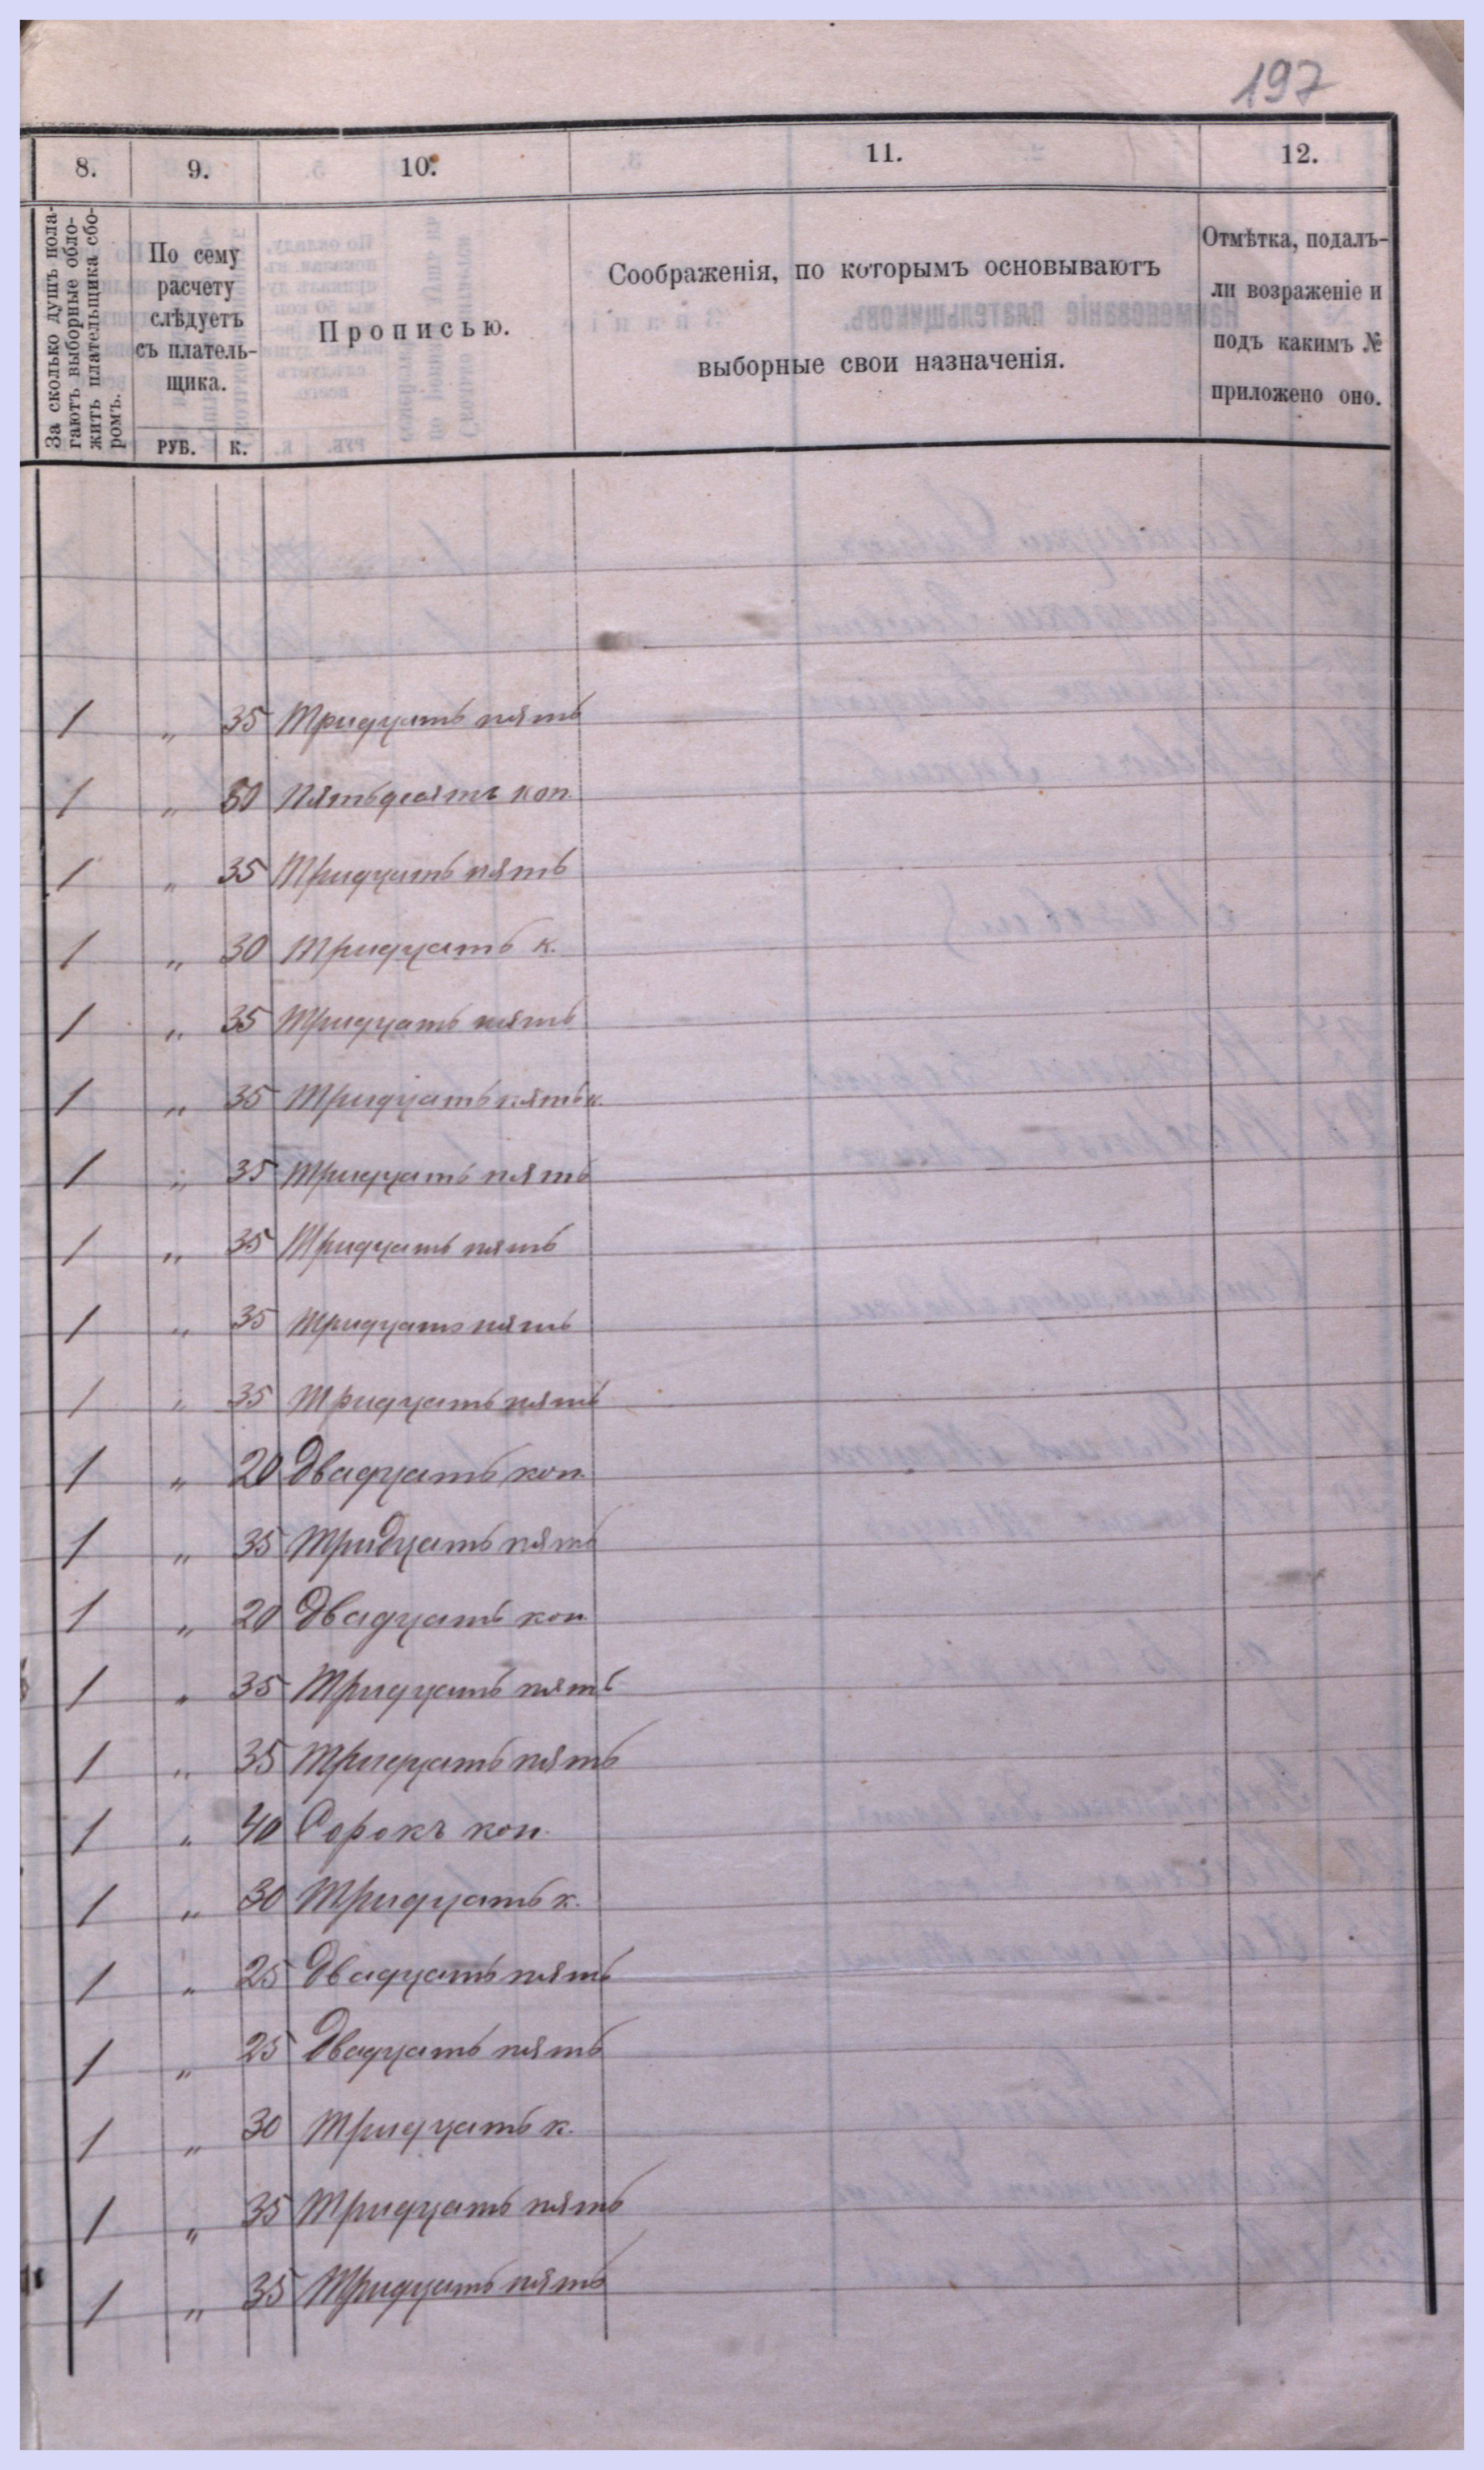 197
8. 9. 10. 11. 12.
За сколько душъ пола-
гаютъ выборные обло-
жить плательщика сбо-
ромъ.
По сему
расчету
слѣдуетъ
съ платель-
щика.
РУБ. К.
Прописью.
Соображенія, по которымъ основываютъ
выборные свои назначенія.
Отмѣтка, подалъ-
ли возраженіе и
подъ какимъ №
приложено оно.
1 „ 35 Тридцать пять
1 „ 50 Пятьдесятъ коп.
1 „ 35 Тридцать пять
1 „ 30 Тридцать к.
1 „ 35 Тридцать пять
1 „ 35 Тридцать пять к.
1 „ 35 Тридцать пять
1 „ 35 Тридцать пять
1 „ 35 Тридцать пять
1 „ 35 Тридцать пять
1 „ 20 Двадцать коп.
1 „ 35 Тридцать пять
1 „ 20 Двадцать коп
1 „ 35 Тридцать пять
1 „ 35 Тридцать пять
1 „ 40 Сорокъ коп.
1 „ 30 Тридцать к.
1 „ 25 Двадцать пять
1 „ 25 Двадцать пять
1 „ 30 Тридцать к.
1 „ 35 Тридцать пять
1 „ 35 Тридцать пять